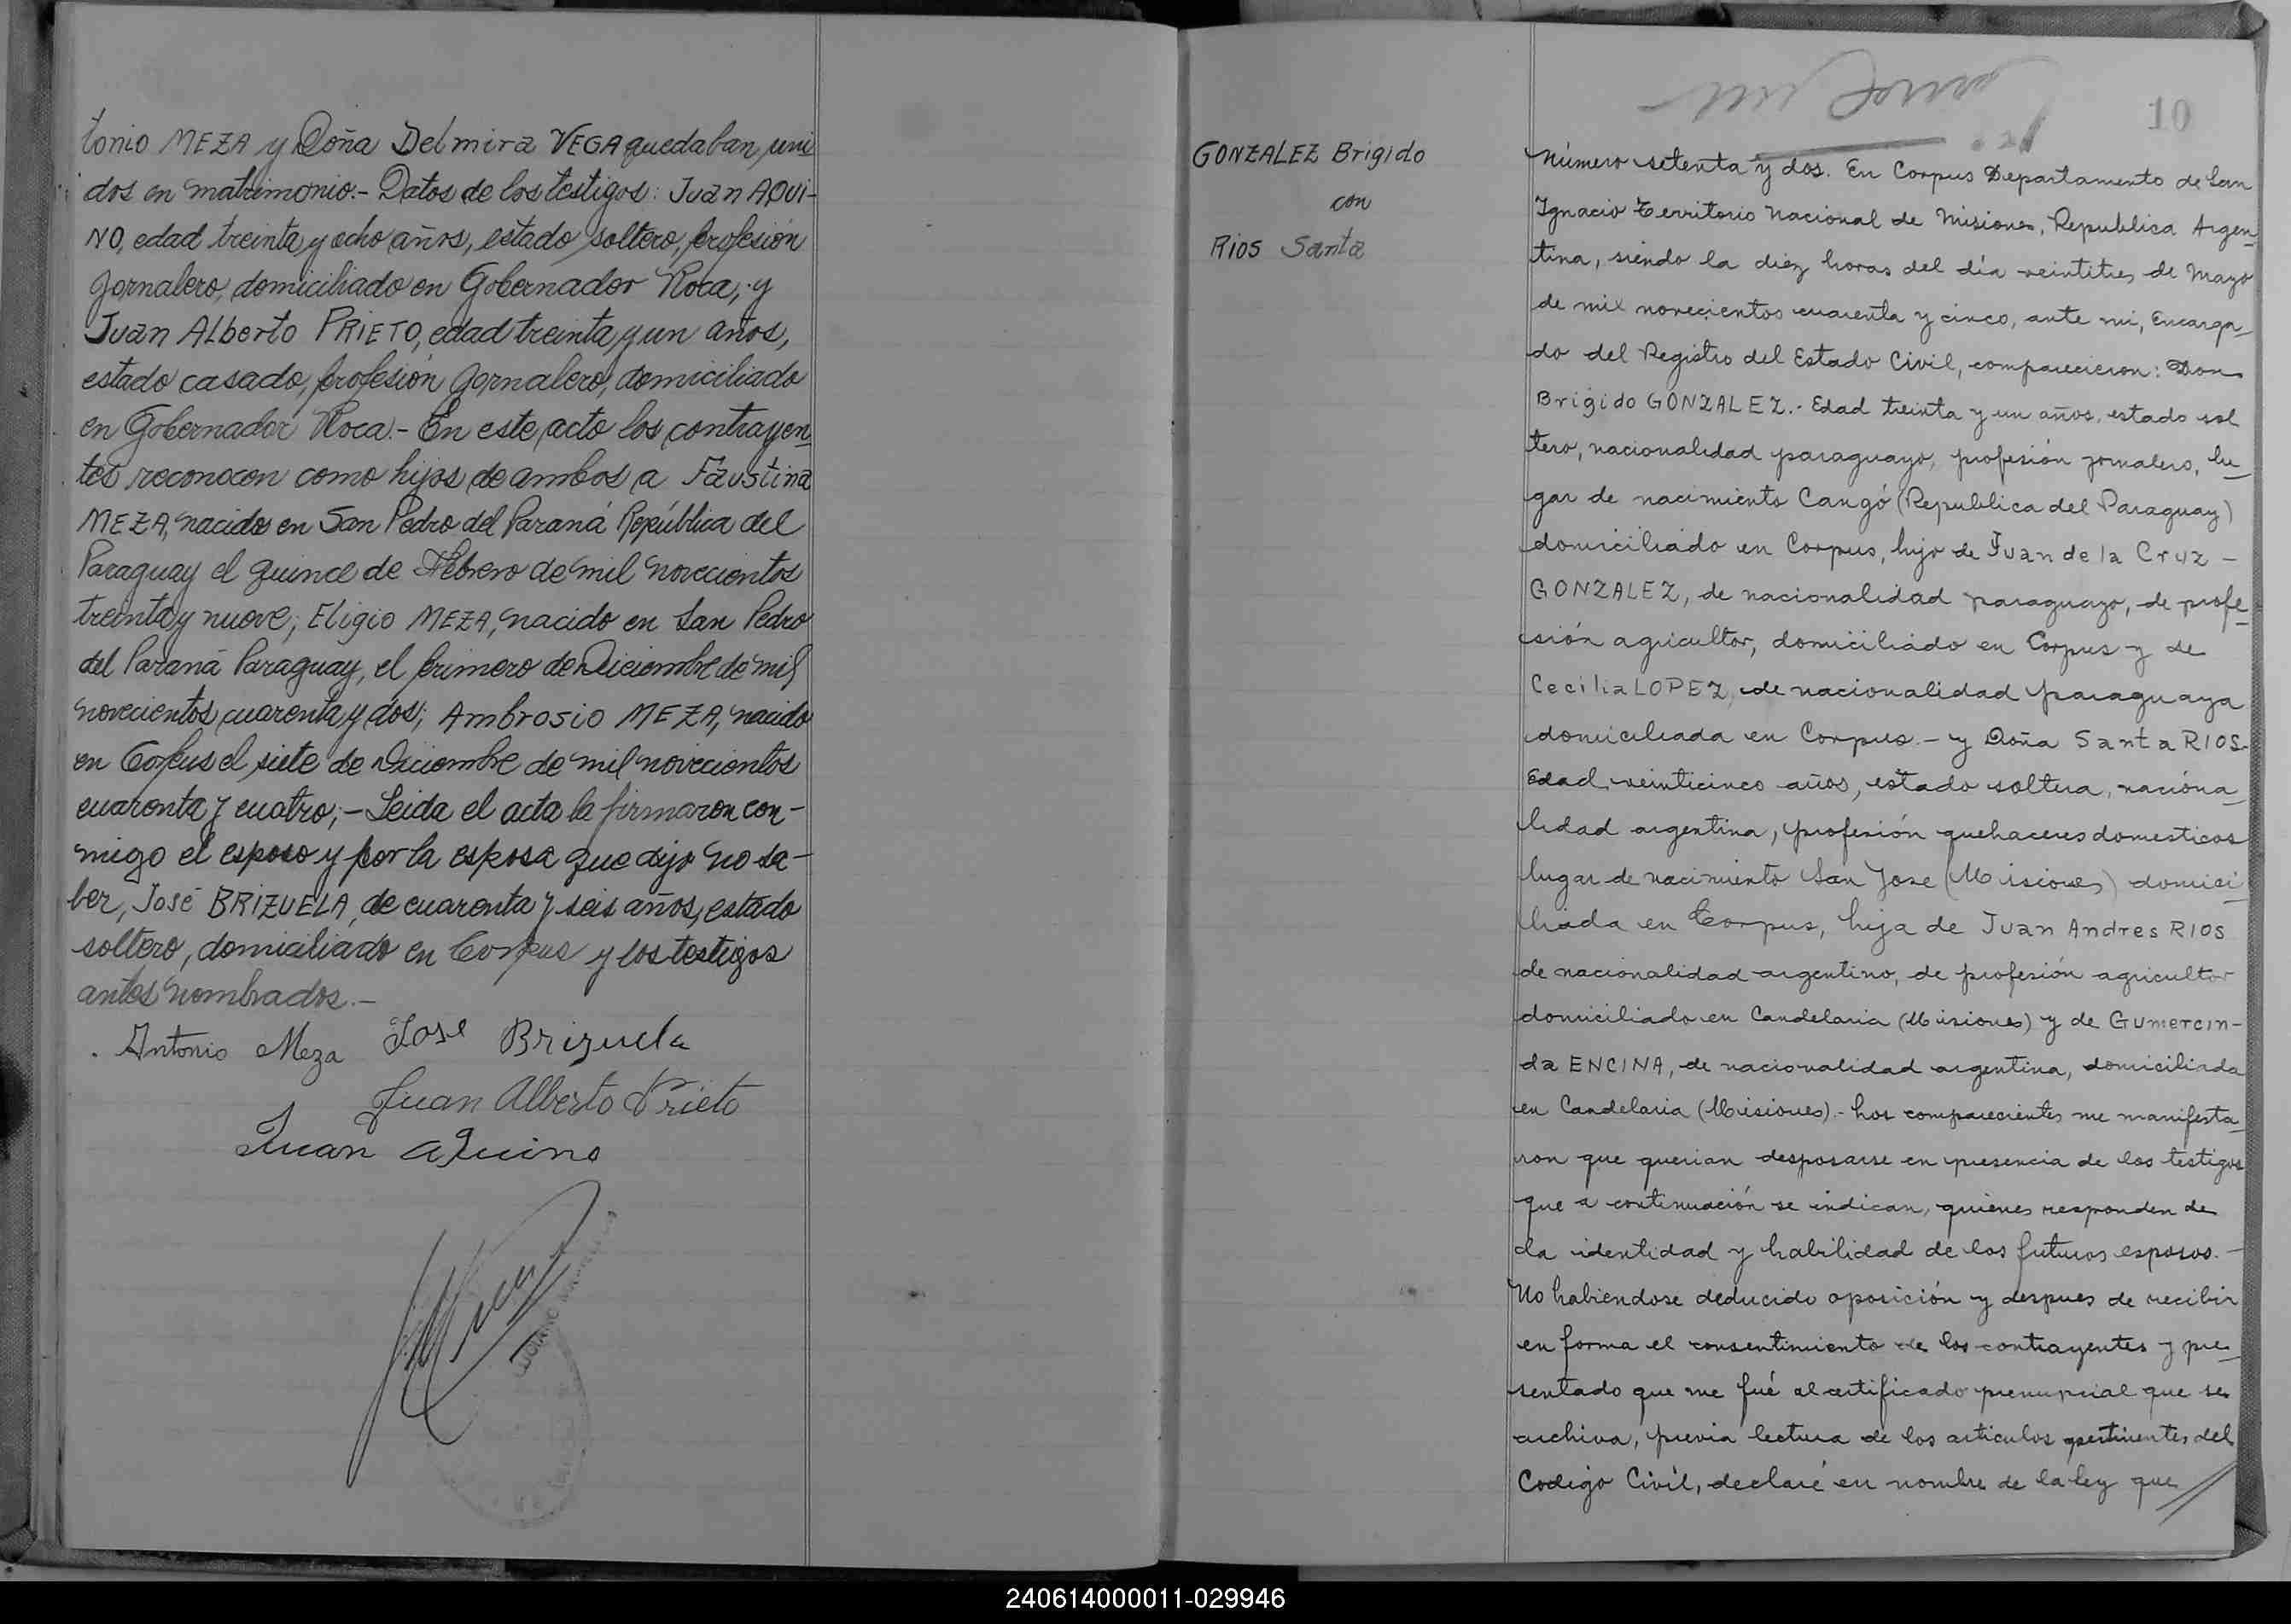 tonio MEZA y Doña Delmira VEGA quedaban uni
dos en matrimonio.- Datos de los testigos: Juan AQUI-
NO, edad treinta y ocho años, estado soltero, profesión
Jornalero, domiciliado en Gobernador Roca; y
Juan Alberto PRIETO, edad treinta y un años,
estado casado, profesión Jornalero, domiciliado
en Gobernador Roca.- En este acto los contrayen
tes reconocen como hijos de ambos a Faustina
MEZA, nacido en San Pedro del Paraná República del
Paraguay el quince de Febrero de mil novecientos
treinta y nueve; Eligio MEZA, nacido en San Pedro
del Paraná Paraguay, el primero de Diciembre de mil
novecientos cuarenta y dos; Ambrosio MEZA, nacido
en Corpus el siete de Diciembre de mil novecientos
cuarenta y cuatro;- Leida el acta la firmaron con-
migo el esposo y por la esposa que dijo no sa-
ber, José BRIZUELA, de cuarenta y seis años, estado
soltero, domiciliado en Corpus y los testigos
antes nombrados.-
Antonio Meza Jose Brizuela
Juan Alberto Prieto
Juan aquino
GONZALEZ Brigido
con
RIOS Santa
10
Número setenta y dos. En Corpus Departamento de San
Ignacio Territorio Nacional de Misiones, Republica Argen
tina, siendo la diez horas del día veintitres de Mayo
de mil novecientos cuarenta y cinco, ante mi, Encarga
do del Registro del Estado Civil, comparecieron: Don
Brigido GONZALEZ.- Edad treinta y un años, estado sol
tero, nacionalidad paraguayo, profesión jornalero, lu
gar de nacimiento Cangó (Republica del Paraguay)
domiciliado en Corpus, hijo de Juan de la Cruz -
GONZALEZ, de nacionalidad paraguayo, de profe
sión agricultor, domiciliado en Corpus y de
Cecilia LOPEZ, de nacionalidad paraguaya
domiciliada en Corpus.- y Doña Santa RIOS.
Edad veinticinco años, estado soltera, naciona
lidad argentina, profesión quehaceres domesticos
lugar de nacimiento San Jose (Misiones) domici
liada en Corpus, hija de Juan Andres RIOS
de nacionalidad argentino, de profesión agricultor
domiciliado en Candelaria (Misiones) y de Gumercin-
da ENCINA, de nacionalidad argentina, domiciliada
en Candelaria (Misiones).- Los comparecientes me manifesta
ron que querian desposarse en presencia de los testigos
que a continuación se indican, quienes responden de
la identidad y habilidad de los futuros esposos. -
No habiendose deducido oposición y despues de recibir
en forma el consentimiento de los contrayentes y pre
sentado que me fué el certificado prenupcial que se
archiva, previa lectura de los articulos pertinentes del
Codigo Civil, declaré en nombre de la ley que
240614000011-029946